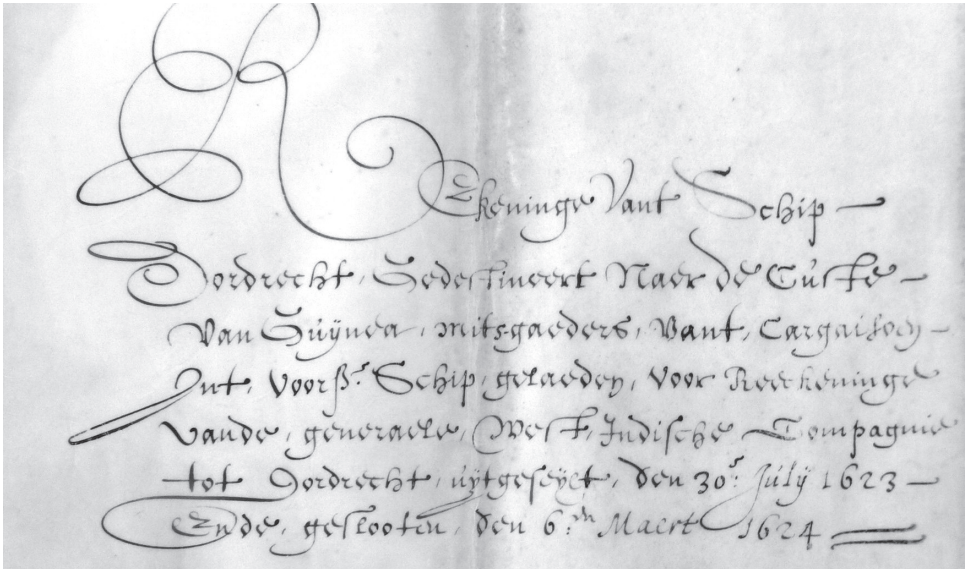 Rekeninge Vant Schip —
Dordrecht, Gedestineert Naer de Custe —
van Guÿnea, mitsgaeders, vant, Cargaisoen —
Int, voorsz. Schip, gelaeden, voor Reeckeninge
vande, generaele, West, Indische Compagnie
tot Dordrecht, uÿtgeseÿlt, den 30s. Julÿ 1623 —
Ende, geslooten, den 6:en Maert 1624